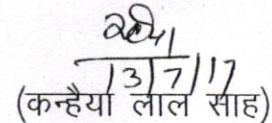 13/7/17
(कन्हैया लाल साह)